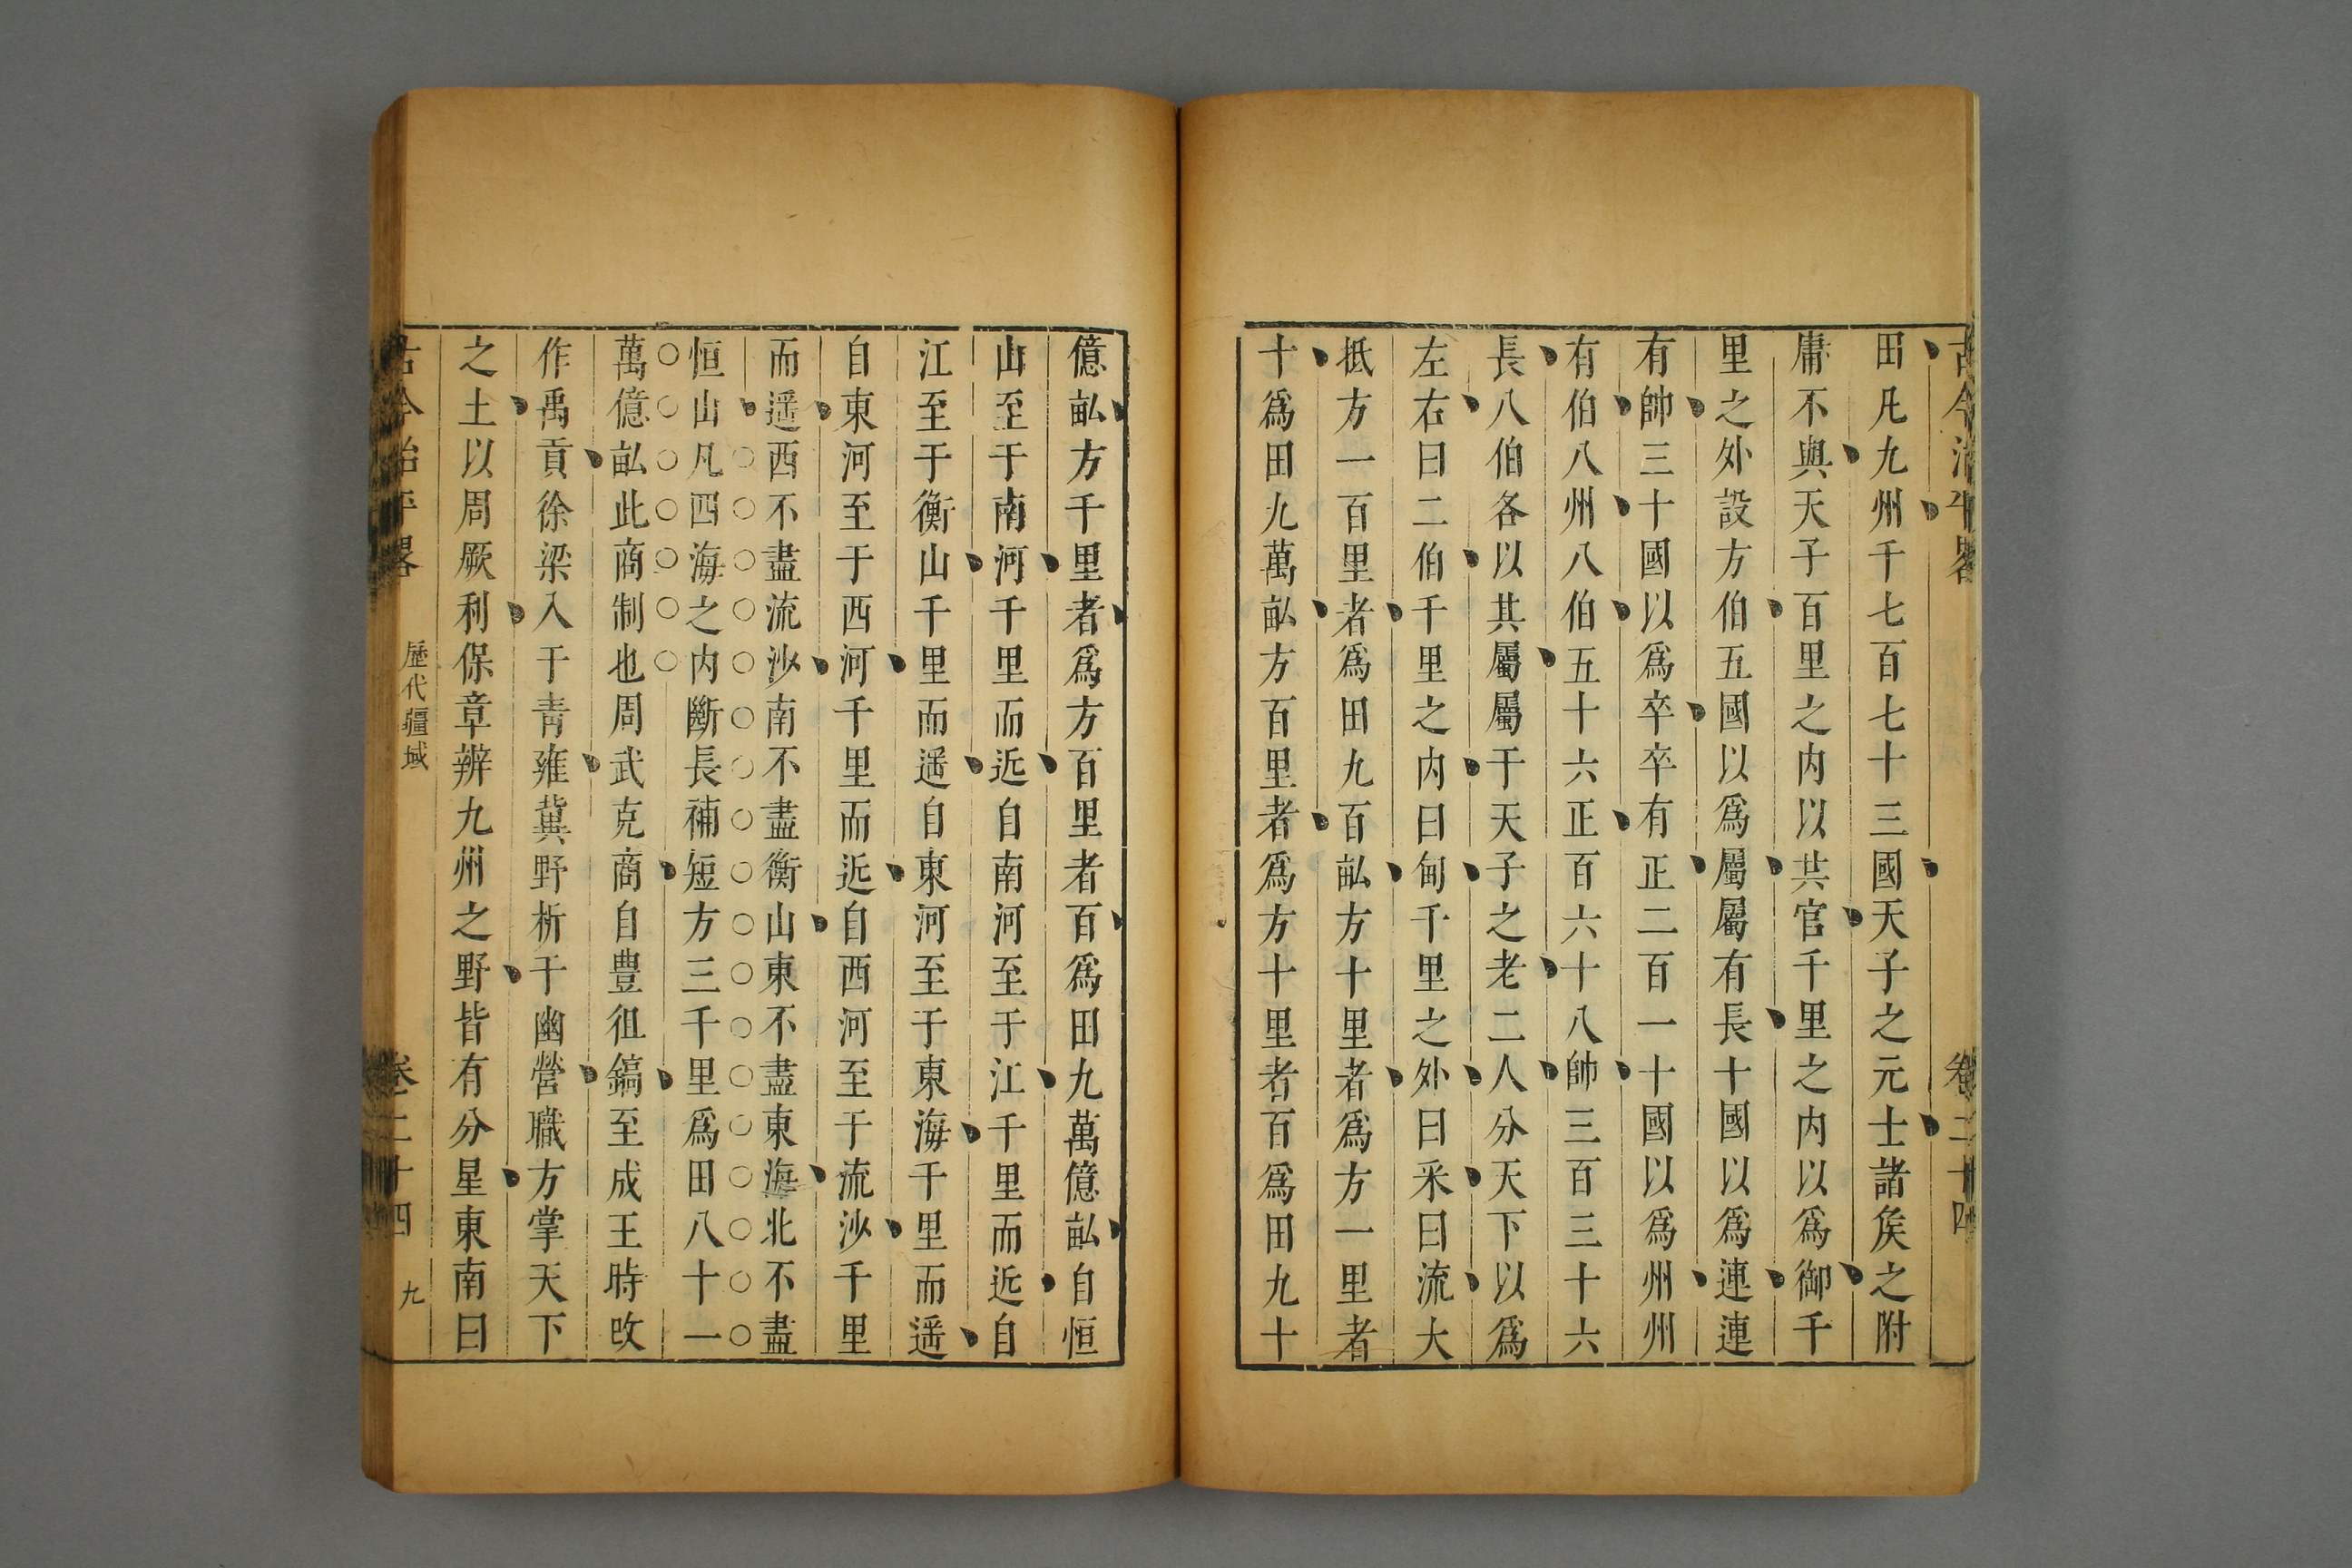 古今治平畧 卷二十四
田凡九州千七百七十三國天子之元士諸矦之附
庸不與天子百里之内以共官千里之内以爲御千
里之外設方伯五國以爲屬屬有長十國以爲連連
有帥三十國以爲卒卒有正二百一十國以爲州州
有伯八州八伯五十六正百六十八帥三百三十六
長八伯各以其屬屬于天子之老二人分天下以爲
左右曰二伯千里之内曰甸千里之外曰采曰流大
抵方一百里者爲田九百畝方十里者爲方一里者
十爲田九萬畝方百里者爲方十里者百爲田九十
億畝方千里者爲方百里者百爲田九萬億畝自恒
山至于南河千里而近自南河至于江千里而近自
江至于衡山千里而遥自東河至于東海千里而遥
自東河至于西河千里而近自西河至于流沙千里
而遥西不盡流沙南不盡衡山東不盡東海北不盡
恒山凡四海之内斷長補短方三千里爲田八十一
萬億畝此商制也周武克商自豊徂鎬至成王時改
作禹貢徐梁入于青雍冀野析于幽營職方掌天下
之土以周厥利保章辨九州之野皆有分星東南曰
古今治平畧 歷代疆域 卷二十四 九